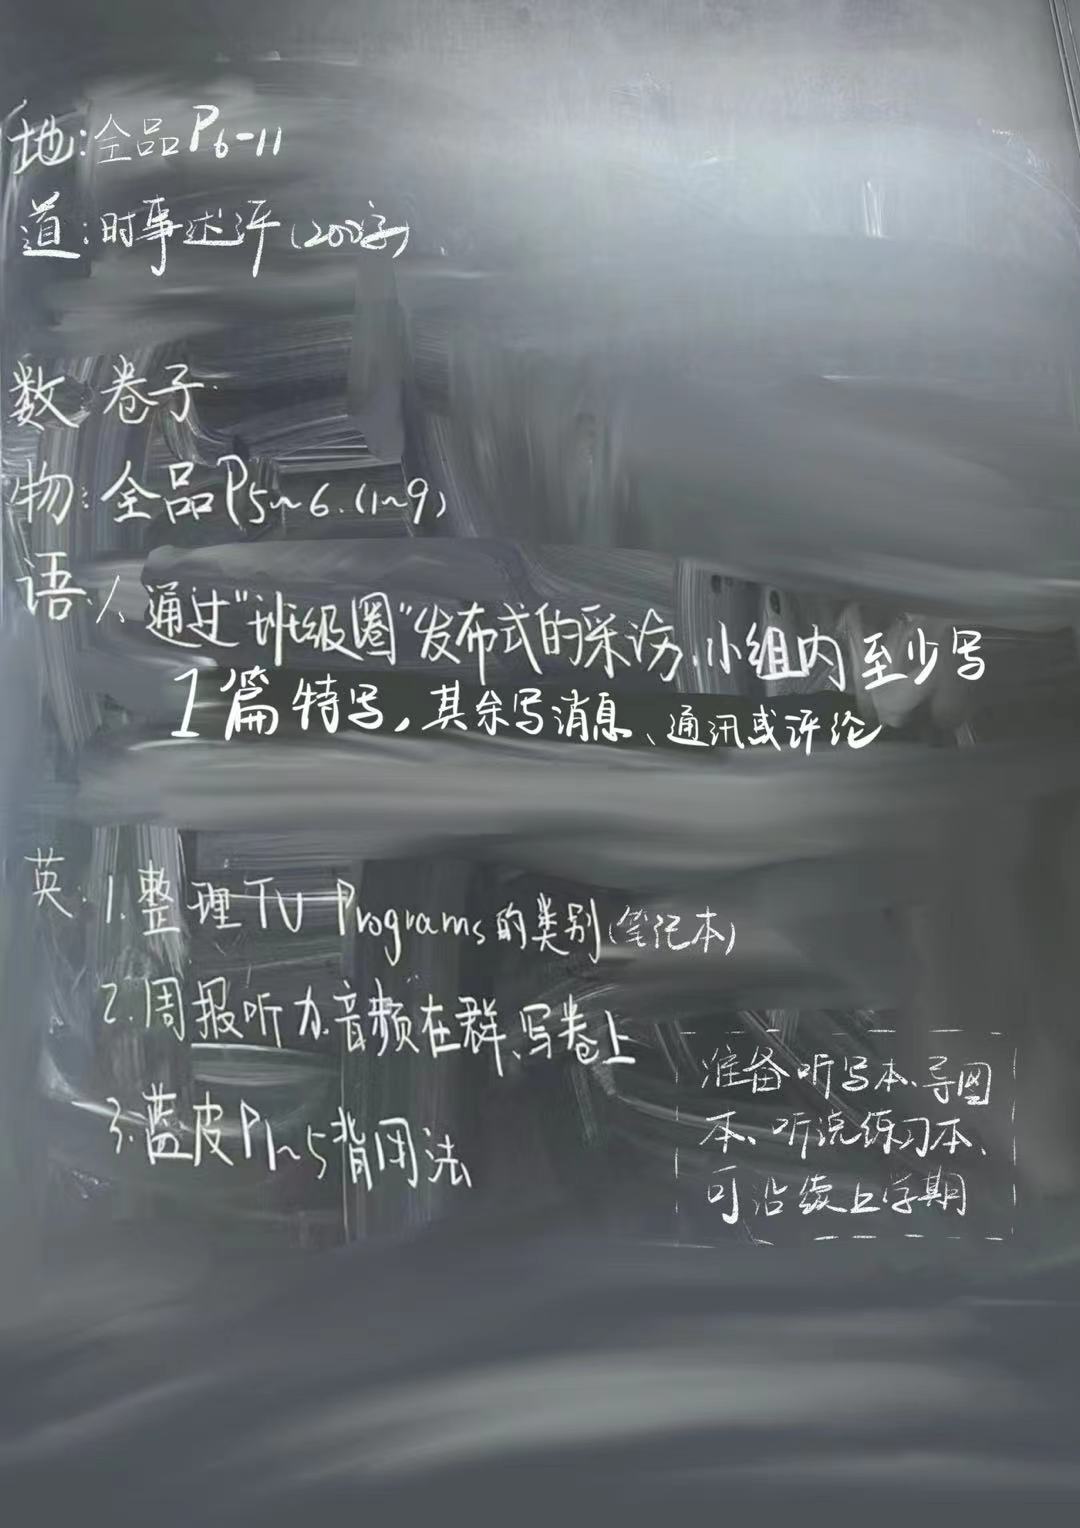 地:全品P6-11
道:时事述评(200字)
数:卷子
物:全品P5~6.(1~9)
语:1、通过"班级圈"发布式的采访,小组内至少写
1篇特写,其余写消息、通讯或评论
英:1.整理TV Programs的类别(笔记本)
2.周报听力.音频在群、写卷上
3.蓝皮P1~5背用法
准备听写本、导图
本、听说练习本、
可沿续上学期